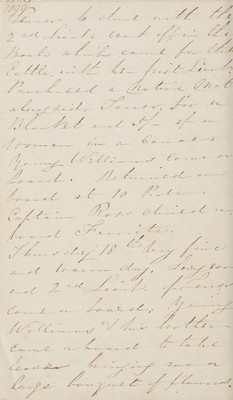 Terror to dine with the
2nd Lieut. went off in the
Boats which came for the
Cattle, with her first Lieut.
Purchased a Native Mat
alongside Terror, for a
Blanket and of a
Woman in a canoe
Young Williams came on
board. Returned on
board at 10 P.m.
Captain Ross dined on
board Favorite.
Thursday 18th Very fine
and warm day. Surgeon
and 2nd Lieut.
came on board. Young
Williams & his brother
came on board to take
leave bringing me a
large bouquet of flowers.